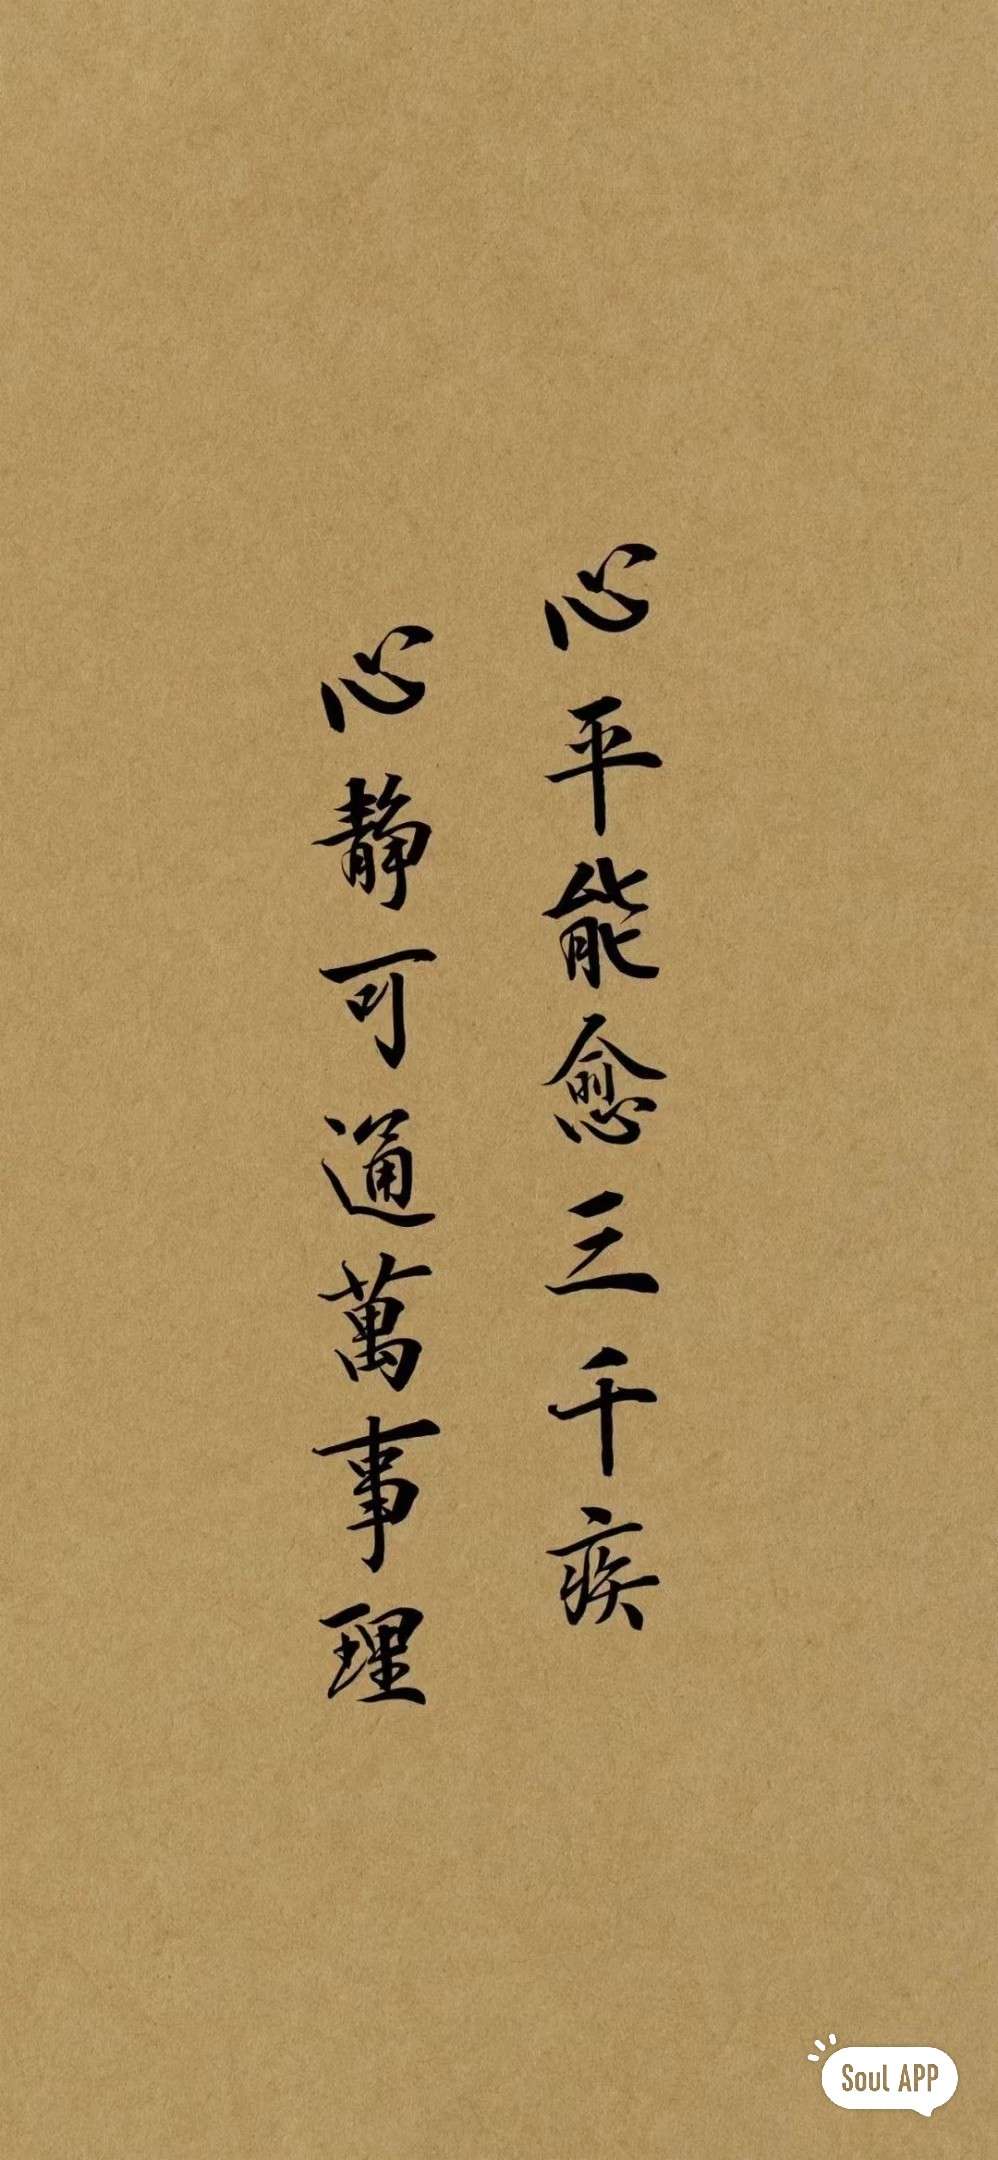 心平能愈三千疾
心静可通萬事理
Soul APP